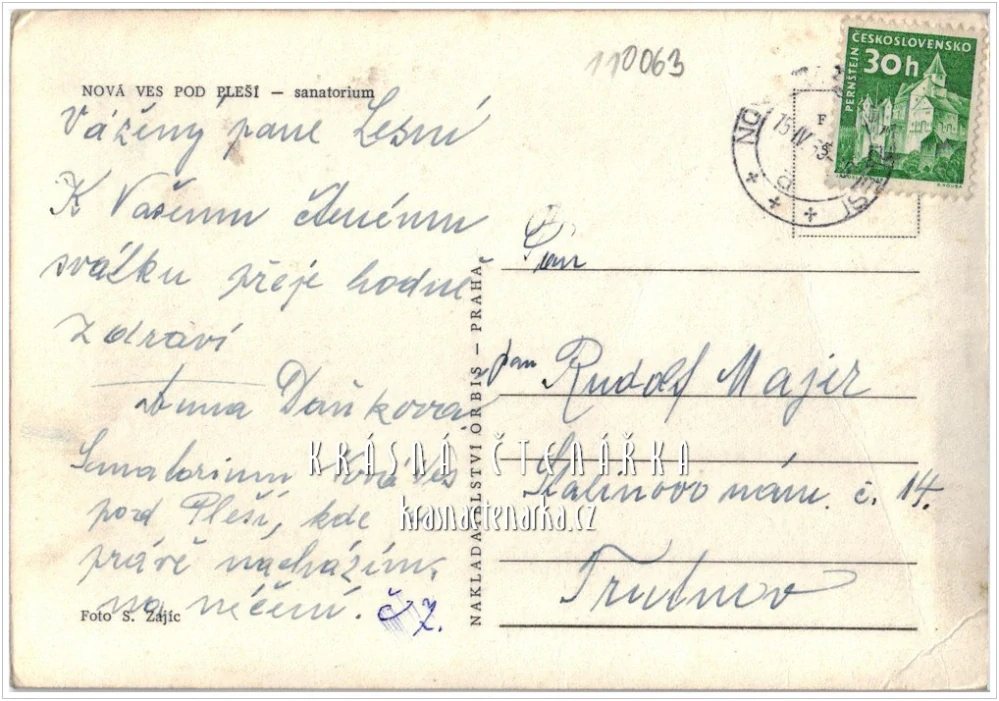 110063
ČESKOSLOVENSKO
30h
PERNŠTEJN
15.IV
NOVÁ VES POD PLEŠÍ — sanatorium
Vážený pane Lesní
K Vašemu ctěnému
svátku přeje hodně
zdraví
Anna Daňková
Sanatorium Nová Ves
pod Pleší, kde
právě nacházím.
na léčení.
Foto S. Zajíc
NAKLADATELSTVÍ ORBIS — PRAHA
Pan
pan Rudolf Majer
Stalinovo nám. č. 14.
Trutnov
KRÁSNÁ ČTENÁŘKA
krasnactenarka.cz